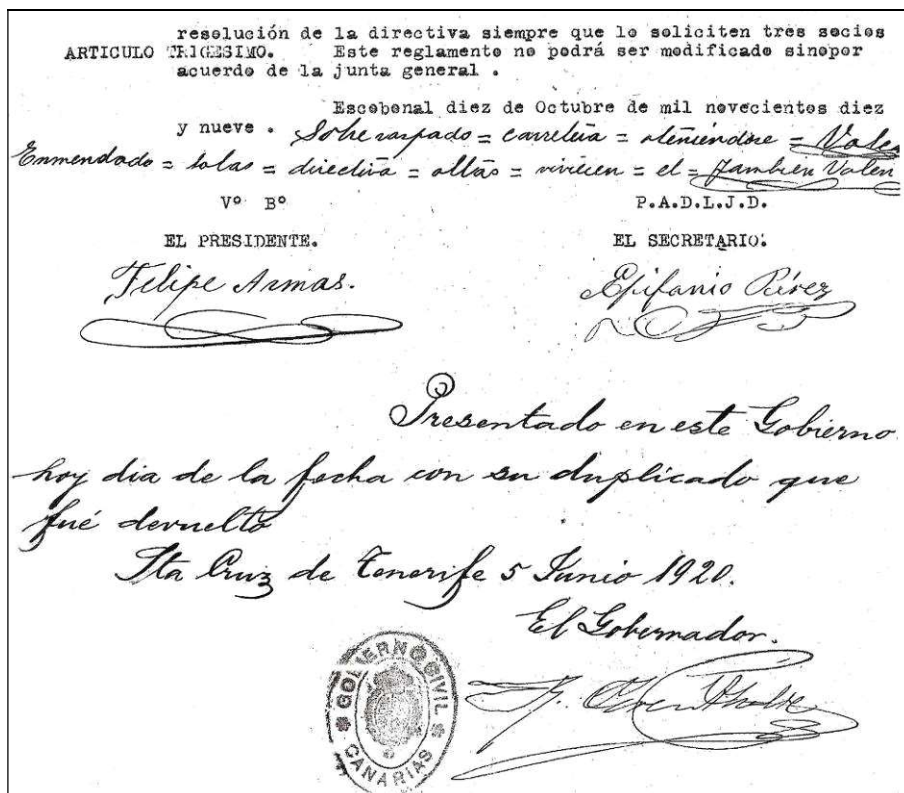 resolución de la directiva siempre que lo soliciten tres socios
ARTICULO TRIGESIMO. Este reglamento no podrá ser modificado sinopor
acuerdo de la junta general .
Escobonal diez de Octubre de mil novecientos diez
y nueve . Sobreraspado = carretera = ateniéndose = Valen
Enmendado = solas = directiva = altas = viviesen = el = También Valen
Vº Bº P.A.D.L.J.D.
EL PRESIDENTE. EL SECRETARIO.
Felipe Armas. Epifanio Pérez
Presentado en este Gobierno
hoy dia de la fecha con su duplicado que
fué devuelto
Sta Cruz de Tenerife 5 Junio 1920.
El Gobernador.
GOBIERNO CIVIL
CANARIAS